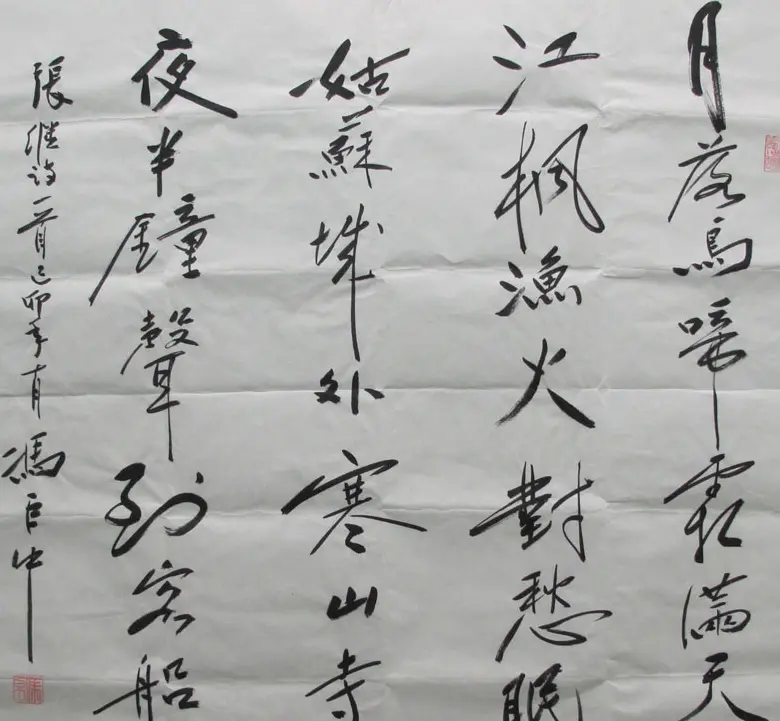 月落烏啼霜滿天
江楓漁火對愁眠
姑蘇城外寒山寺
夜半鐘聲到客船
張继詩一首己卯年有馮巨中